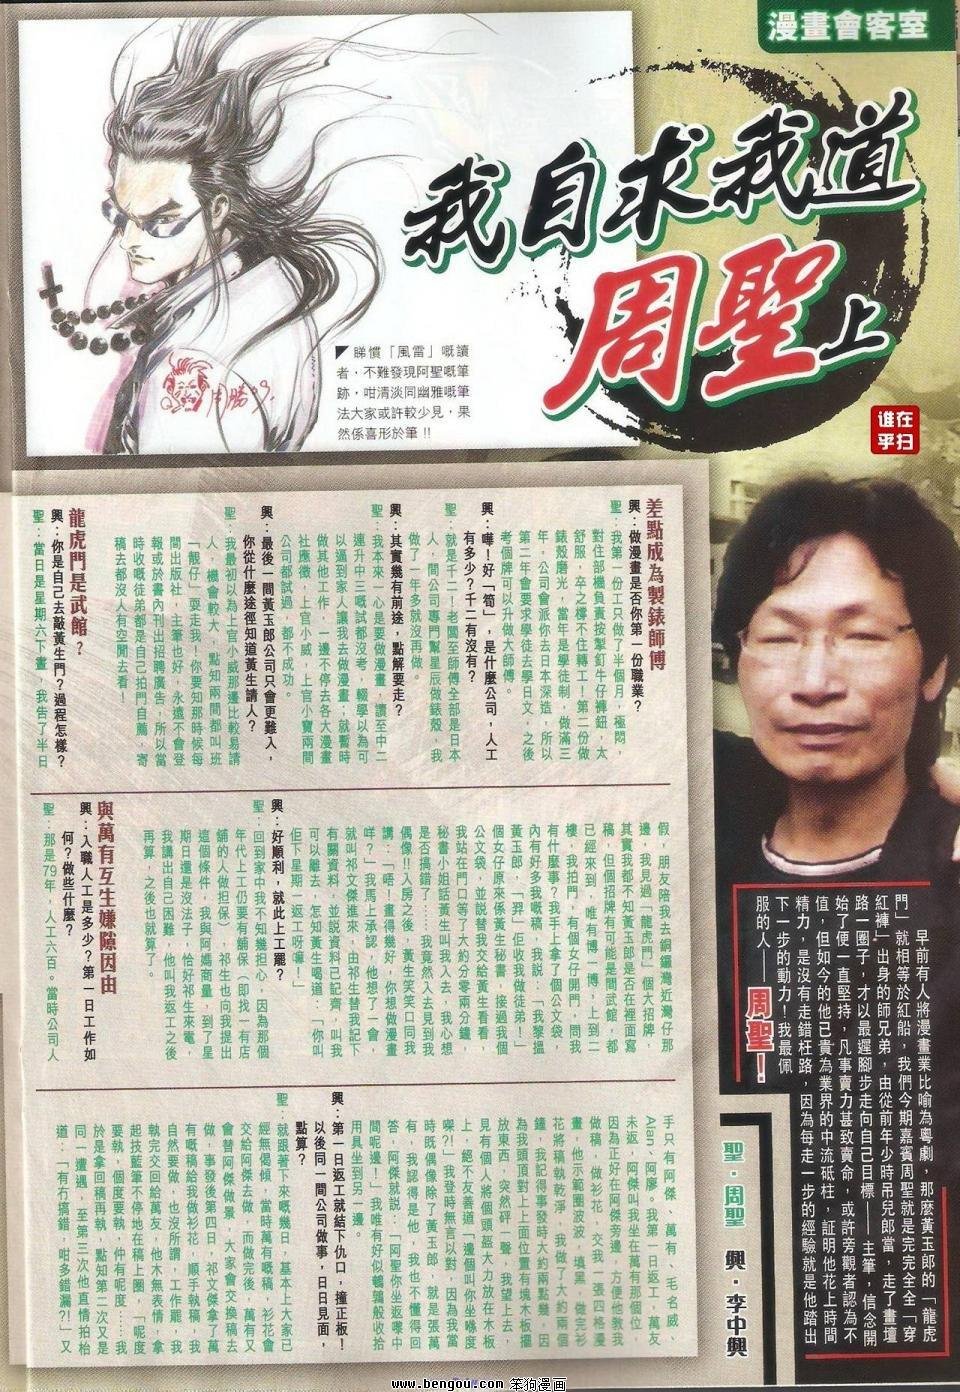 漫畫會客室
我自求我道
周聖上
谁在
乎扫
睇慣「風雷」嘅讀
者，不難發現阿聖嘅筆
跡，咁清淡同幽雅嘅筆
法大家或許較少見，果
然係喜形於筆!!
早前有人將漫畫業比喻為粵劇，那麼黃玉郎的「龍虎
門」就相等於紅船，我們今期嘉賓周聖就是完完全全「穿
紅褲」出身的師兄弟，由從前年少時吊兒郎當，走了畫壇
路一圈子，才以最遲腳步走向自己目標——主筆，信念開
始了便一直堅持，凡事賣力甚致賣命，或許旁觀者認為不
值，但如今的他已貴為業界的中流砥柱，証明他花上時間
精力，是沒有走錯枉路，因為每走一步的經驗就是他踏出
下一步的動力！我最佩
服的人——周聖！
聖．周聖　興．李中興
差點成為製錶師傅
興：做漫畫是否你第一份職業？
聖：我第一份工只做了半個月，極悶，
對住部機負責按掣釘牛仔褲鈕，太
舒服，卒之㩒不住轉工！第二份做
錶殼磨光，當年是學徒制，做滿三
年，公司會派你去日本深造，所以
第二年會要求學徒去學日文，之後
考個牌可以升做大師傅。
興：嘩！好「筍」，是什麼公司，人工
有多少？千二有沒有？
聖：就是千二！老闆至師傅全部是日本
人，間公司專門幫星辰做錶殼，我
做了一年多就沒再做。
興：其實幾有前途，點解要走？
聖：我本來一心是要做漫畫，讀至中二
連升中三嘅試都沒考，輟學以為可
以逼到家人讓我去做漫畫；就暫時
做其他工作，一邊不停去各大漫畫
社應徵，上官小威，上官小寶兩間
公司都試過，都不成功。
興：最後一間黃玉郎公司只會更難入，
你從什麼途徑知道黃生請人？
聖：我最初以為上官小威那邊比較易請
人，機會較大，點知兩間都叫班
「靚仔」耍走我！你要知那時候每
間出版社，主筆也好，永遠不會登
報或於書內刊出招聘廣告，所以當
時收嘅徒弟都是自己拍門自薦，寄
稿去都沒人有空閒去看！
龍虎門是武館？
興：你是自己去敲黃生門？過程怎樣？
聖：當日是星期六下晝，我告了半日
假，朋友陪我去銅鑼灣近灣仔那
邊，我見過「龍虎門」個大招牌，
其實我都不知黃玉郎是否在裡面寫
稿，個心想有可能是間武館，都
已經來到，唯有博一博，上到二
樓，我拍門，有個女仔開門，問我
有什麼事？我手上拿了個公文袋，
內有好多我嘅稿，我說：「我黎搵
黃玉郎，「羿」佢收我做徒弟！」
個女仔原來係黃生秘書，接過我個
公文袋，並說替我交給黃生看看，
我站在門口等了大約分零兩分鐘，
秘書小姐話黃生叫我入去，我心想
是否搞錯了……我竟然入去見到我
偶像!!入房之後，黃生笑笑口同我
講：「唔！畫得幾好，你想做漫畫
咩？」我馬上承認，他想了一會，
就叫祁文傑進來，由祁生替我記下
有關資料，並說資料已記齊，叫我
可以離去，怎知黃生喝道：「你叫
佢下星期一返工呀嘛！」
興：好順利，就此上工罷？
聖：回到家中我不知幾担心，因為那個
年代上工仍要有舖保（即找一有店
舖的人做担保），祁生也向我提出
這個條件，我與阿媽商量，到了星
期日還是沒法子，恰好祁生來電，
我講出自己困難，他叫我返工之後
再算，之後也就算了。
與萬有互生嫌隙因由
興：入職人工是多少？第一日工作如
何？做些什麼？
聖：那是79年，人工六百。當時公司人
手只有阿傑、萬有、毛名威、
Alan、阿廖。我第一日返工，萬友
未返，阿傑叫我坐在萬有那個位，
因為正好在阿傑旁邊，方便他教我
做稿，做衫花，交我一張四格漫
畫，他示範圈波波，填黑，做完衫
花將稿執乾淨，我做了大約兩個
鐘，我記得事發時大約兩點幾，因
為我頭頂對上上面位置有塊木板擺
放東西，突然砰一聲，我望上去，
見有個人將個頭盔大力放在木板
上，絕不友善道「邊個叫你坐喺度
㗎?!」我登時無言以對，因為我當
時既偶像除了黃玉郎，就是張萬
有，我認得是他，我也不懂得回
答，阿傑就說：「阿聖你坐返嚟中
間呢邊！」我唯有好似鵪鶉般收拾
用具坐到另一邊。
興：第一日返工就結下仇口，撞正板！
以後同一間公司做事，日日見面，
點算？
聖：就跟著下來嘅幾日，基本上大家已
經無偈傾，當時萬有嘅稿，衫花會
交給阿傑去做，而做完後，萬有又
會替阿傑做景，大家會交換稿去
做，事發後第四日，祁文傑拿了萬
有嘅稿給我做衫花，順手執稿，我
自然要做，也沒所謂，工作罷，我
執完交回給萬友，他木無表情，拿
起技藍筆不停地在稿上圈，「呢度
要執，個度要執，仲有呢度…」我
於是拿回稿再執，點知第二次又是
同一遭遇，至第三次他直情拍枱
道：「有冇搞錯，咁多錯漏?!」又
www.bengou.com 笨狗漫画